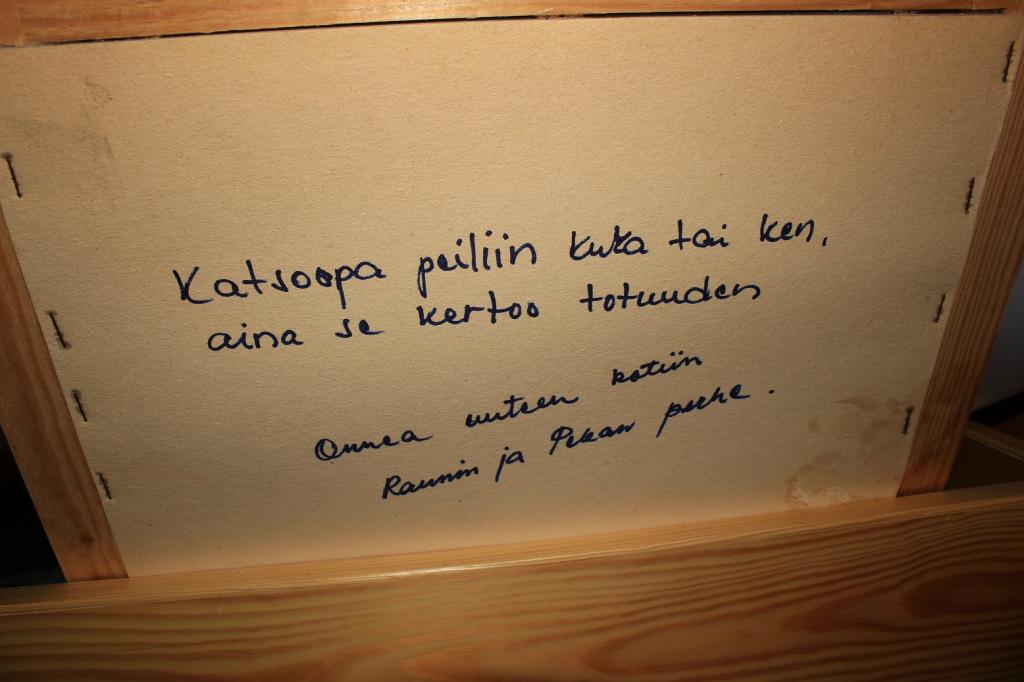 Katsoopa peiliin kuka tai ken,
aina se kertoo totuuden
Onnea uuteen kotiin
Raunin ja Pekan perhe.